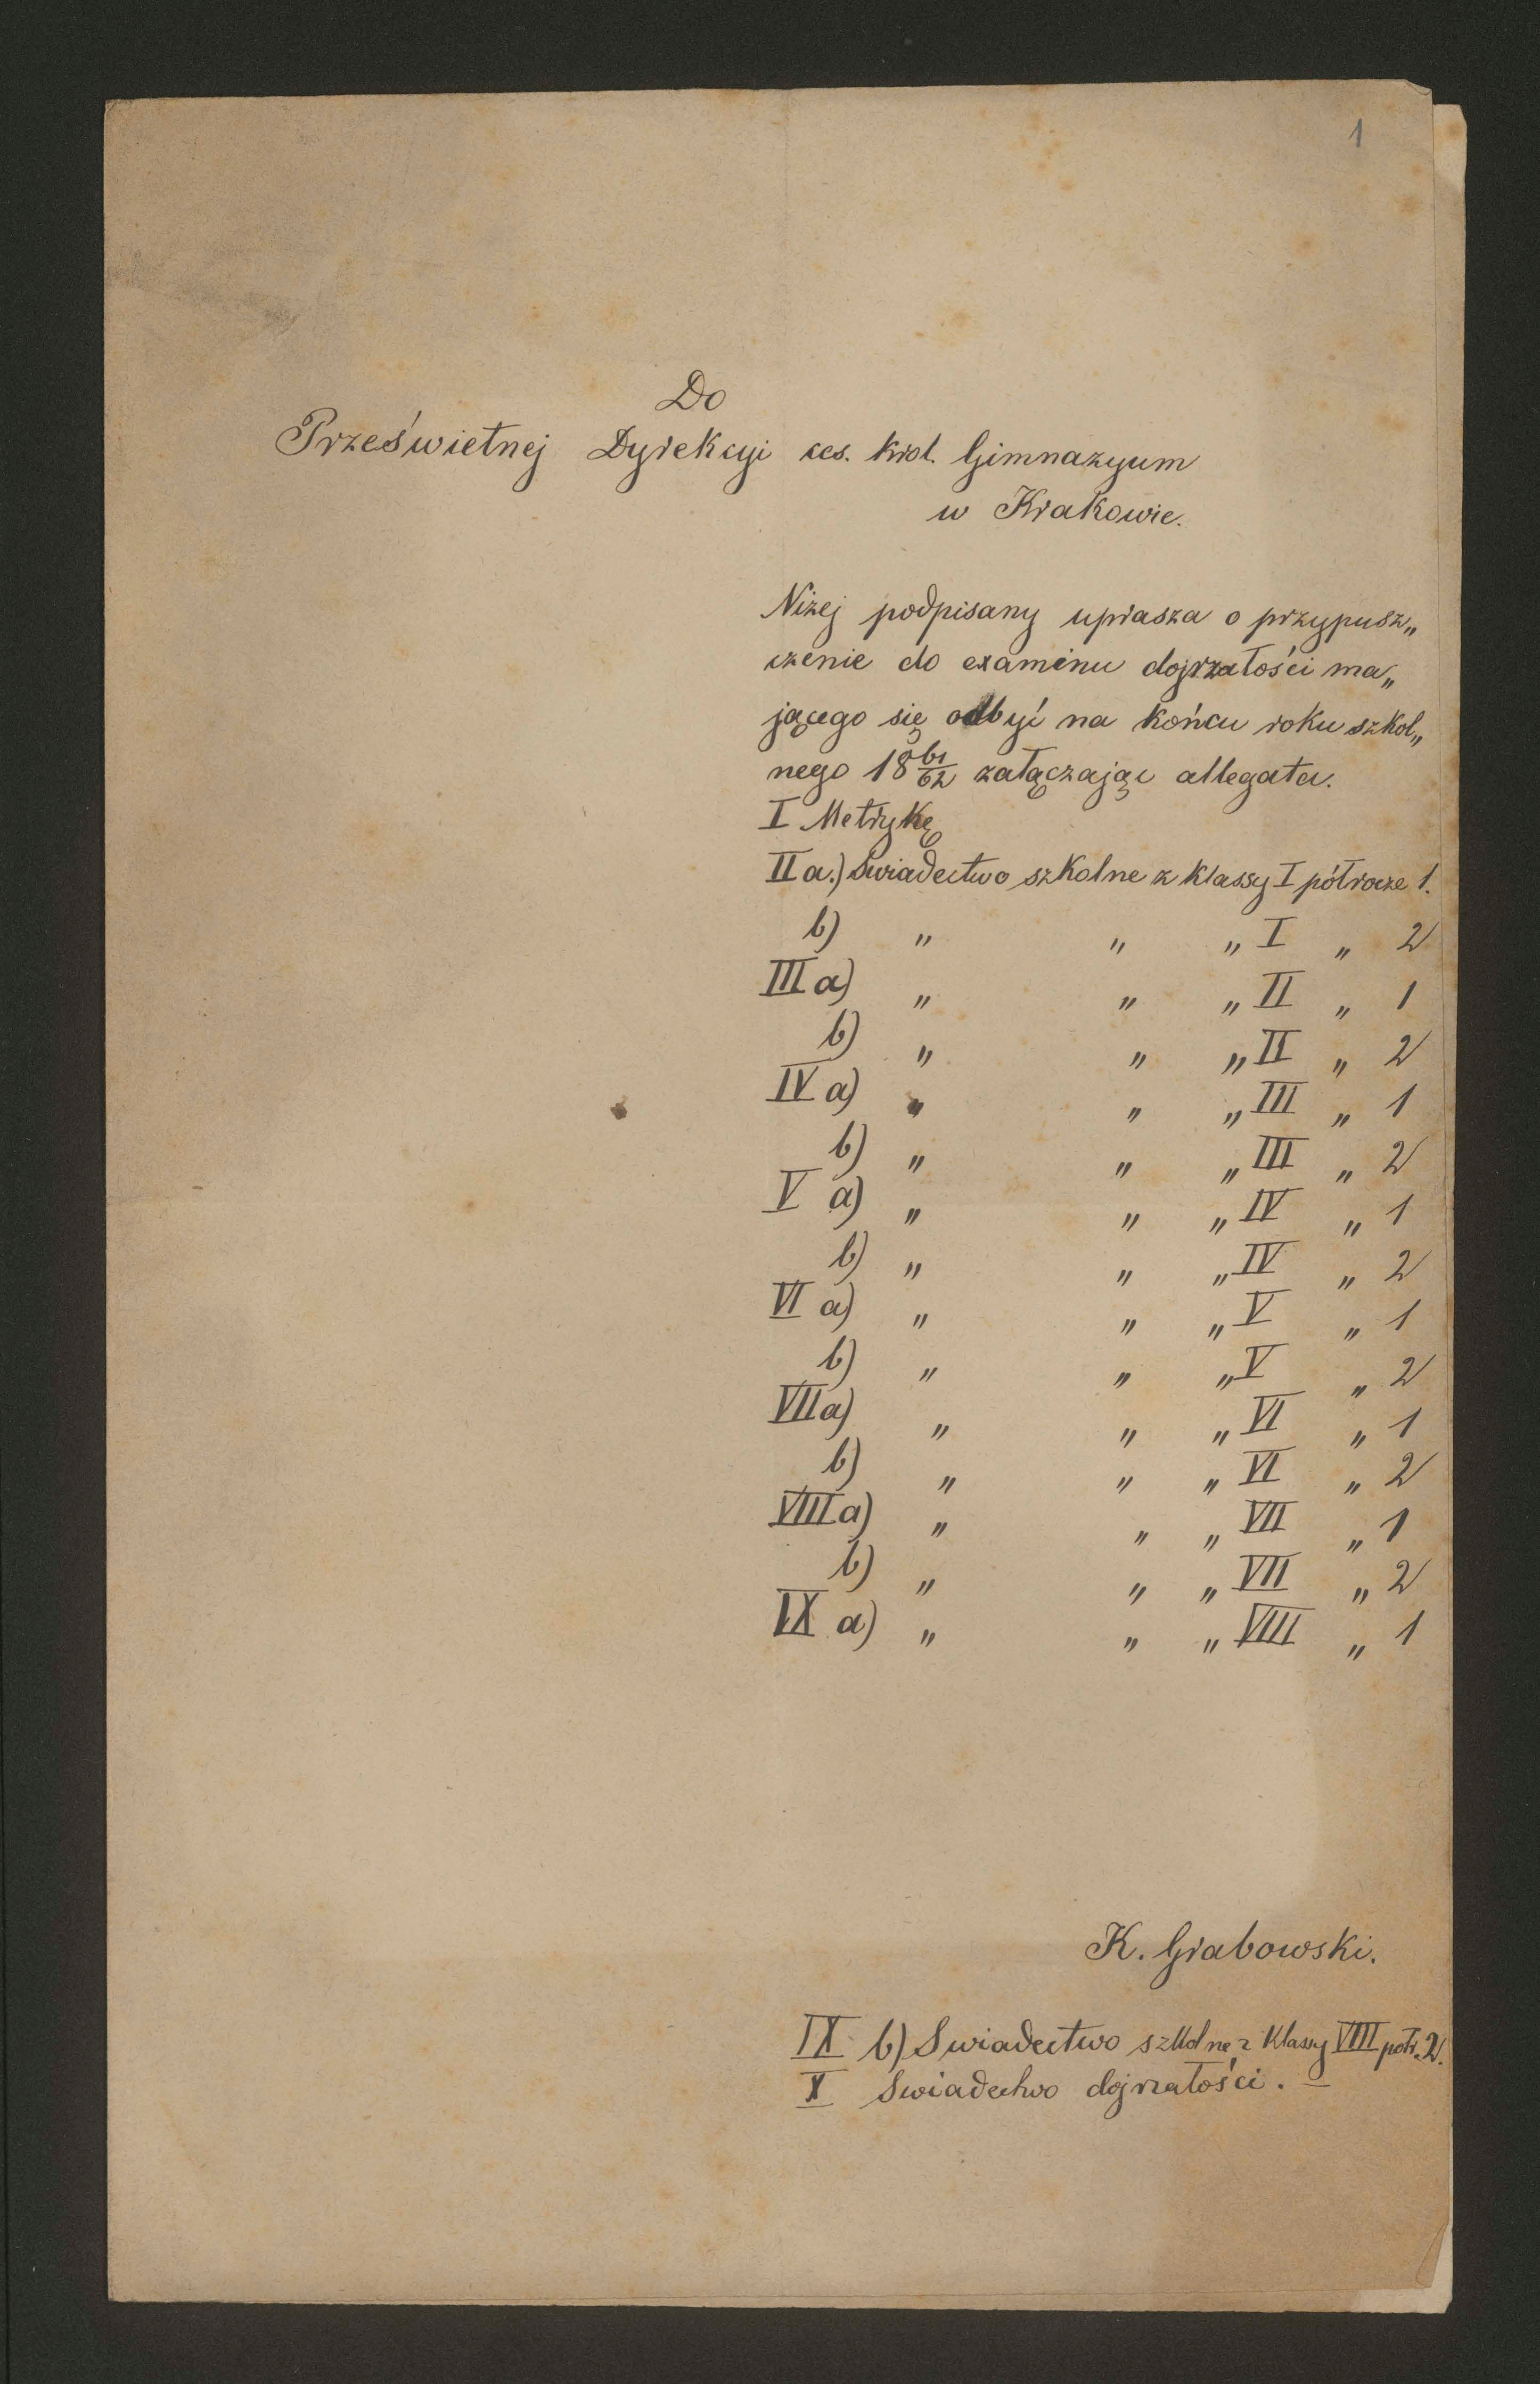 1
Do
Prześwietnej Dyrekcyi ces. król. Gimnazyum
w Krakowie.
Niżej podpisany uprasza o przypusz„
czenie do examinu dojrzałości ma„
jącego się odbyć na końcu roku szkol„
nego 18 61/62 załączając allegata.
I Metrykę
II a.) Swiadectwo szkolne z klassy I półrocze 1.
b) „ „ „ I „ 2
III a) „ „ „ II „ 1
b) „ „ „ II „ 2
IV a) „ „ „ III „ 1
b) „ „ „ III „ 2
V a) „ „ „ IV „ 1
b) „ „ „ IV „ 2
VI a) „ „ „ V „ 1
b) „ „ „ V „ 2
VII a) „ „ „ VI „ 1
b) „ „ „ VI „ 2
VIII a) „ „ „ VII „ 1
b) „ „ „ VII „ 2
IX a) „ „ „ VIII „ 1
K. Grabowski.
IX b) Swiadectwo szkolne z klassy VIII półr. 2.
X Swiadectwo dojrzałości. —